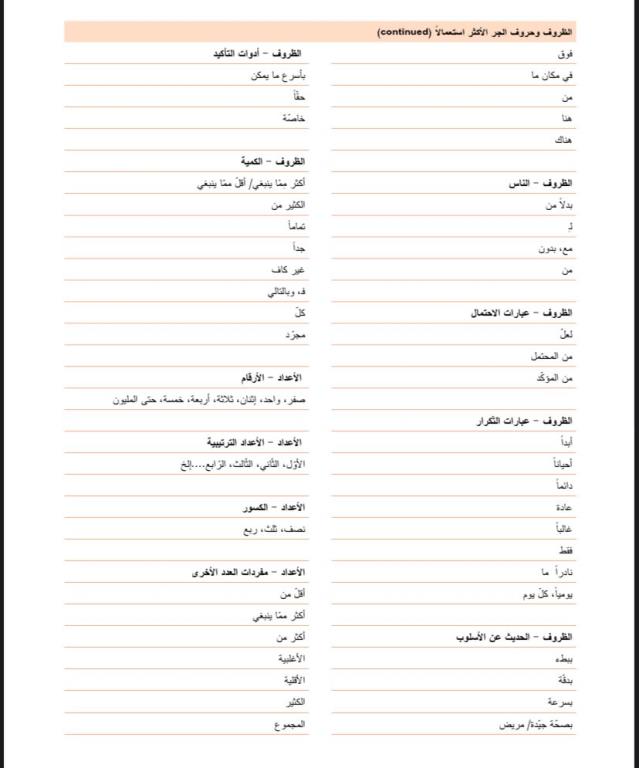 الظروف وحروف الجر الأكثر استعمالاً (continued)
فوق
في مكان ما
من
هنا
هناك
الظروف – الناس
بدلاً من
لـ
مع، بدون
من
الظروف – عبارات الاحتمال
لعلّ
من المحتمل
من المؤكّد
الظروف – عبارات التّكرار
أبداً
أحياناً
دائماً
عادة
غالباً
فقط
نادراً ما
يومياً، كلّ يوم
الظروف – الحديث عن الأسلوب
ببطء
بدقّة
بسرعة
بصحّة جيّدة/ مريض
الظروف – أدوات التأكيد
بأسرع ما يمكن
حقّاً
خاصّة
الظروف – الكمية
أكثر مِمّا ينبغي/ أقلّ ممّا ينبغي
الكثير من
تماماً
جداً
غير كاف
فـ، وبالتالي
كلّ
مجرّد
الأعداد – الأرقام
صفر، واحد، إثنان، ثلاثة، أربعة، خمسة، حتى المليون
الأعداد – الأعداد الترتيبية
الأوّل، الثّاني، الثّالث، الرّابع....إلخ
الأعداد – الكسور
نصف، ثلث، ربع
الأعداد – مفردات العدد الأخرى
أقلّ من
أكثر ممّا ينبغي
أكثر من
الأغلبية
الأقلية
الكثير
المجموع